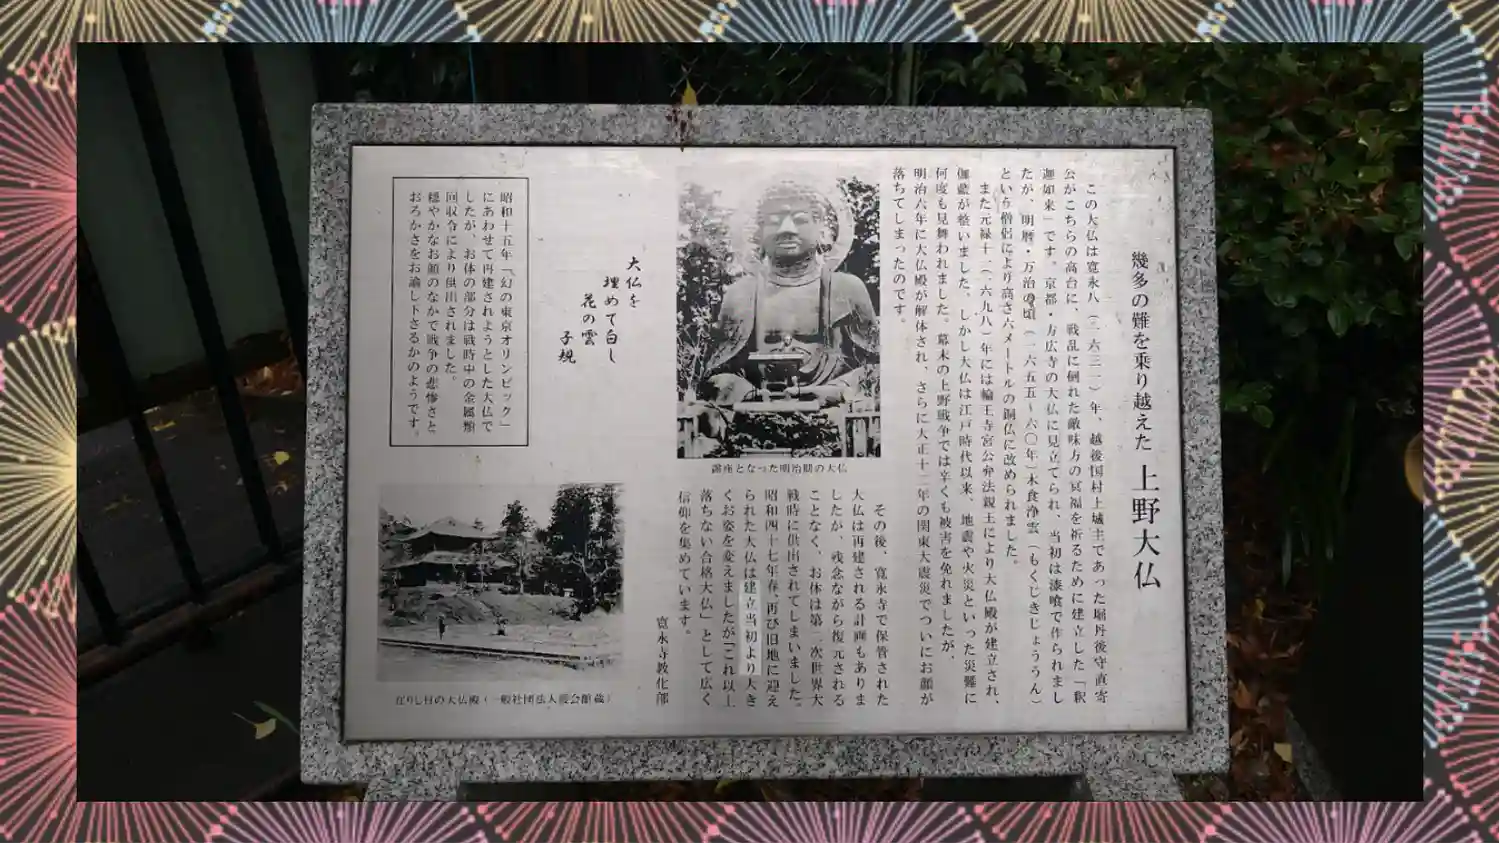 幾多の難を乗り越えた 上野大仏
この大仏は寛永八（一六三一）年、越後国村上城主であった堀丹後守直寄
公がこちらの高台に、戦乱に倒れた敵味方の冥福を祈るために建立した「釈
迦如来」です。京都・方広寺の大仏に見立てられ、当初は漆喰で作られまし
たが、明暦・万治の頃（一六五五～六〇年）木食浄雲（もくじきじょううん）
という僧侶により高さ六メートルの銅仏に改められました。
また元禄十一（一六九八）年には輪王寺宮公弁法親王により大仏殿が建立され、
伽藍が整いました。しかし大仏は江戸時代以来、地震や火災といった災難に
何度も見舞われました。幕末の上野戦争では辛くも被害を免れましたが、
明治六年に大仏殿が解体され、さらに大正十二年の関東大震災でついにお顔が
落ちてしまったのです。
露座となった明治期の大仏
その後、寛永寺で保管された
大仏は再建される計画もありま
したが、残念ながら復元される
ことなく、お体は第二次世界大
戦時に供出されてしまいました。
昭和四十七年春、再び旧地に迎え
られた大仏は建立当初より大き
くお姿を変えましたが「これ以上
落ちない合格大仏」として広く
信仰を集めています。
寛永寺教化部
大仏を
埋めて白し
花の雲
子規
昭和十五年「幻の東京オリンピック」
にあわせて再建されようとした大仏で
したが、お体の部分は戦時中の金属類
回収令により供出されました。
穏やかなお顔のなかで戦争の悲惨さと
おろかさをお諭し下さるかのようです。
在りし日の大仏殿（一般社団法人霞会館蔵）